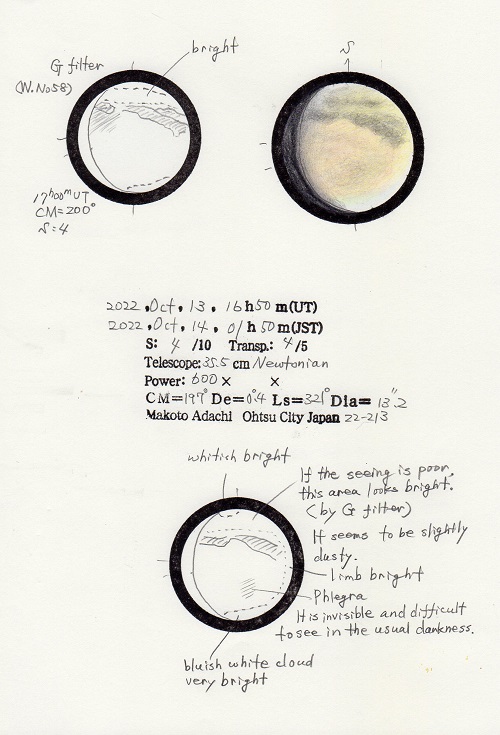 bright
G filter
(W.No58)
S
17h00m UT
CM=200°
S=4
2022, Oct, 13, 16h50m(UT)
2022, Oct, 14, 01h50m(JST)
S: 4 /10 Transp.: 4/5
Telescope: 35.5 cm Newtonian
Power: 600× ×
CM=197° De=0.°4 Ls=321° Dia= 13."2
Makoto Adachi Ohtsu City Japan 22-213
whitich bright
If the seeing is poor,
this area looks bright.
(by G filter)
It seems to be slightly
dusty.
limb bright
Phlegra
It is invisible and difficult
to see in the usual darkness.
bluish white cloud
very bright